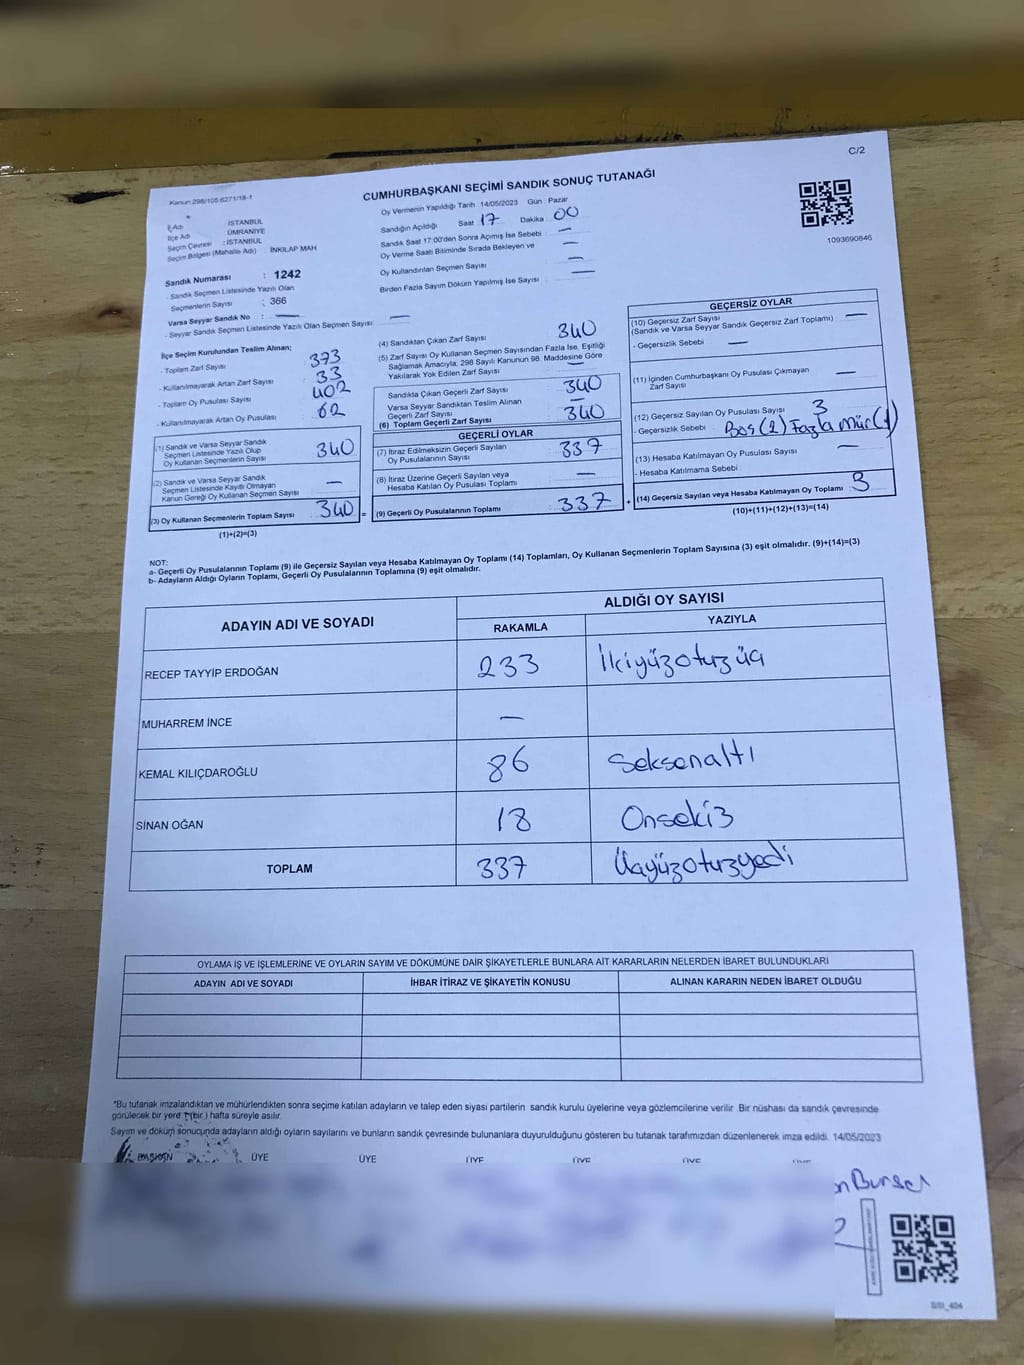 C/2
Kanun:298/105 6271/18-1
CUMHURBAŞKANI SEÇİMİ SANDIK SONUÇ TUTANAĞI
İl Adı : İSTANBUL
İlçe Adı : ÜMRANİYE
Seçim Çevresi : İSTANBUL
Seçim Bölgesi (Mahalle Adı) : İNKILAP MAH
Sandık Numarası : 1242
Sandık Seçmen Listesinde Yazılı Olan
Seçmenlerin Sayısı : 366
Varsa Seyyar Sandık No : —
- Seyyar Sandık Seçmen Listesinde Yazılı Olan Seçmen Sayısı: —
Oy Vermenin Yapıldığı Tarih 14/05/2023 Gün : Pazar
Sandığın Açıldığı Saat 17 Dakika 00
Sandık Saat 17:00'den Sonra Açılmış İse Sebebi —
Oy Verme Saati Bitiminde Sırada Bekleyen ve —
Oy Kullandırılan Seçmen Sayısı —
Birden Fazla Sayım Döküm Yapılmış İse Sayısı —
1093690846
İlçe Seçim Kurulundan Teslim Alınan;
- Toplam Zarf Sayısı 373
- Kullanılmayarak Artan Zarf Sayısı 33
- Toplam Oy Pusulası Sayısı 402
- Kullanılmayarak Artan Oy Pusulası 62
(1) Sandık ve Varsa Seyyar Sandık
Seçmen Listesinde Yazılı Olup
Oy Kullanan Seçmenlerin Sayısı 340
(2) Sandık ve Varsa Seyyar Sandık
Seçmen Listesinde Kayıtlı Olmayan
Kanun Gereği Oy Kullanan Seçmen Sayısı —
(3) Oy Kullanan Seçmenlerin Toplam Sayısı 340 =
(1)+(2)=(3)
(4) Sandıktan Çıkan Zarf Sayısı 340
(5) Zarf Sayısı Oy Kullanan Seçmen Sayısından Fazla İse, Eşitliği
Sağlamak Amacıyla, 298 Sayılı Kanunun 98. Maddesine Göre
Yakılarak Yok Edilen Zarf Sayısı —
Sandıkta Çıkan Geçerli Zarf Sayısı 340
Varsa Seyyar Sandıktan Teslim Alınan
Geçerli Zarf Sayısı —
(6) Toplam Geçerli Zarf Sayısı 340
GEÇERLİ OYLAR
(7) İtiraz Edilmeksizin Geçerli Sayılan
Oy Pusulalarının Sayısı 337
(8) İtiraz Üzerine Geçerli Sayılan veya
Hesaba Katılan Oy Pusulası Toplamı —
(9) Geçerli Oy Pusulalarının Toplamı 337 +
GEÇERSİZ OYLAR
(10) Geçersiz Zarf Sayısı —
(Sandık ve Varsa Seyyar Sandık Geçersiz Zarf Toplamı)
- Geçersizlik Sebebi —
(11) İçinden Cumhurbaşkanı Oy Pusulası Çıkmayan
Zarf Sayısı —
(12) Geçersiz Sayılan Oy Pusulası Sayısı 3
- Geçersizlik Sebebi : Boş (2) Fazla Mür(1)
(13) Hesaba Katılmayan Oy Pusulası Sayısı —
- Hesaba Katılmama Sebebi
(14) Geçersiz Sayılan veya Hesaba Katılmayan Oy Toplamı 3
(10)+(11)+(12)+(13)=(14)
NOT:
a- Geçerli Oy Pusulalarının Toplamı (9) ile Geçersiz Sayılan veya Hesaba Katılmayan Oy Toplamı (14) Toplamları, Oy Kullanan Seçmenlerin Toplam Sayısına (3) eşit olmalıdır. (9)+(14)=(3)
b- Adayların Aldığı Oyların Toplamı, Geçerli Oy Pusulalarının Toplamına (9) eşit olmalıdır.
ADAYIN ADI VE SOYADI
ALDIĞI OY SAYISI
RAKAMLA YAZIYLA
RECEP TAYYİP ERDOĞAN 233 İkiyüzotuzüç
MUHARREM İNCE —
KEMAL KILIÇDAROĞLU 86 Seksenaltı
SİNAN OĞAN 18 Onsekiz
TOPLAM 337 Üçyüzotuzyedi
OYLAMA İŞ VE İŞLEMLERİNE VE OYLARIN SAYIM VE DÖKÜMÜNE DAİR ŞİKAYETLERLE BUNLARA AİT KARARLARIN NELERDEN İBARET BULUNDUKLARI
ADAYIN ADI VE SOYADI İHBAR İTİRAZ VE ŞİKAYETİN KONUSU ALINAN KARARIN NEDEN İBARET OLDUĞU
*Bu tutanak imzalandıktan ve mühürlendikten sonra seçime katılan adayların ve talep eden siyasi partilerin sandık kurulu üyelerine veya gözlemcilerine verilir. Bir nüshası da sandık çevresinde
görülecek bir yere 1(bir.) hafta süreyle asılır.
Sayım ve döküm sonucunda adayların aldığı oyların sayılarını ve bunların sandık çevresinde bulunanlara duyurulduğunu gösteren bu tutanak tarafımızdan düzenlenerek imza edildi. 14/05/2023
BAŞKAN ÜYE ÜYE ÜYE ÜYE ÜYE